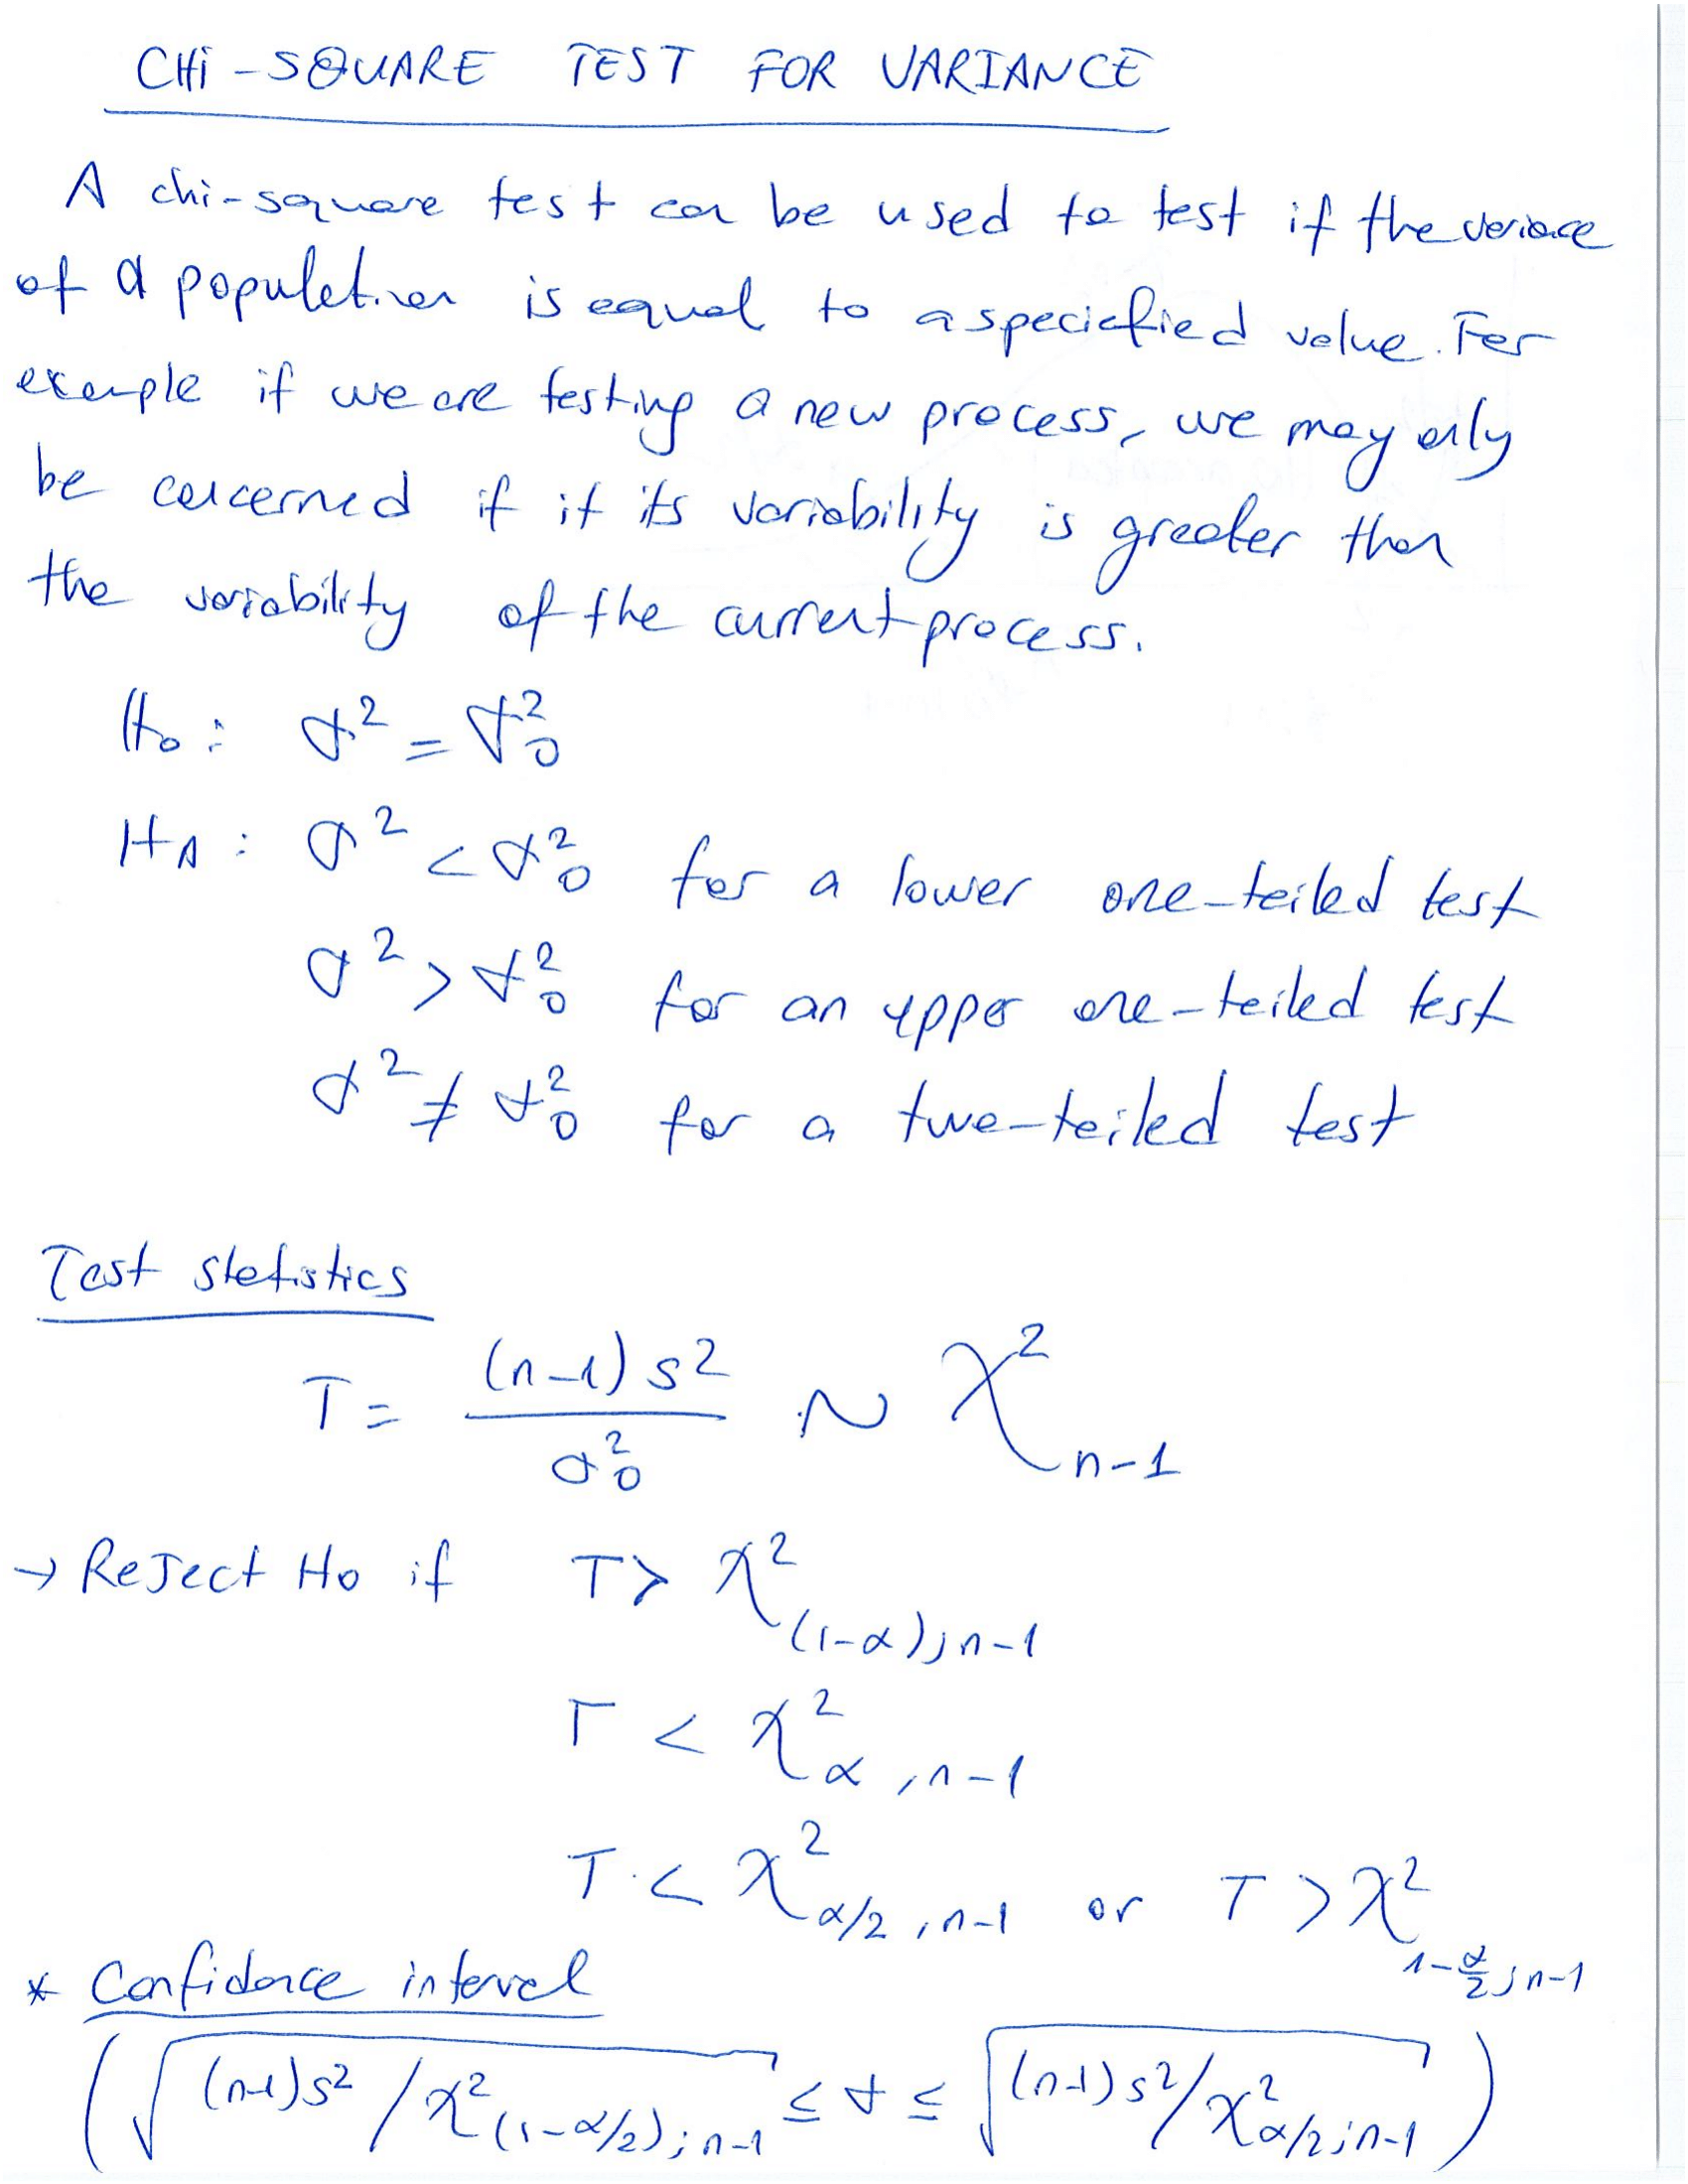 CHi-SQUARE TEST FOR VARIANCE
A chi-square test can be used to test if the variance
of a population is equal to a speciefied value. For
example if we are testing a new process, we may only
be concerned if it its variability is greater than
the variability of the current process.
H₀ : σ² = σ₀²
H_A : σ² < σ₀² for a lower one-tailed test
σ² > σ₀² for an upper one-tailed test
σ² ≠ σ₀² for a two-tailed test
Test statistics
T = (n-1) s² / σ₀² ~ χ²_{n-1}
→ Reject H₀ if T > χ²_{(1-α); n-1}
T < χ²_{α, n-1}
T < χ²_{α/2, n-1} or T > χ²_{1-α/2; n-1}
* Confidence interval
(√((n-1)s² / χ²_{(1-α/2); n-1}) ≤ σ ≤ √((n-1)s² / χ²_{α/2; n-1}))